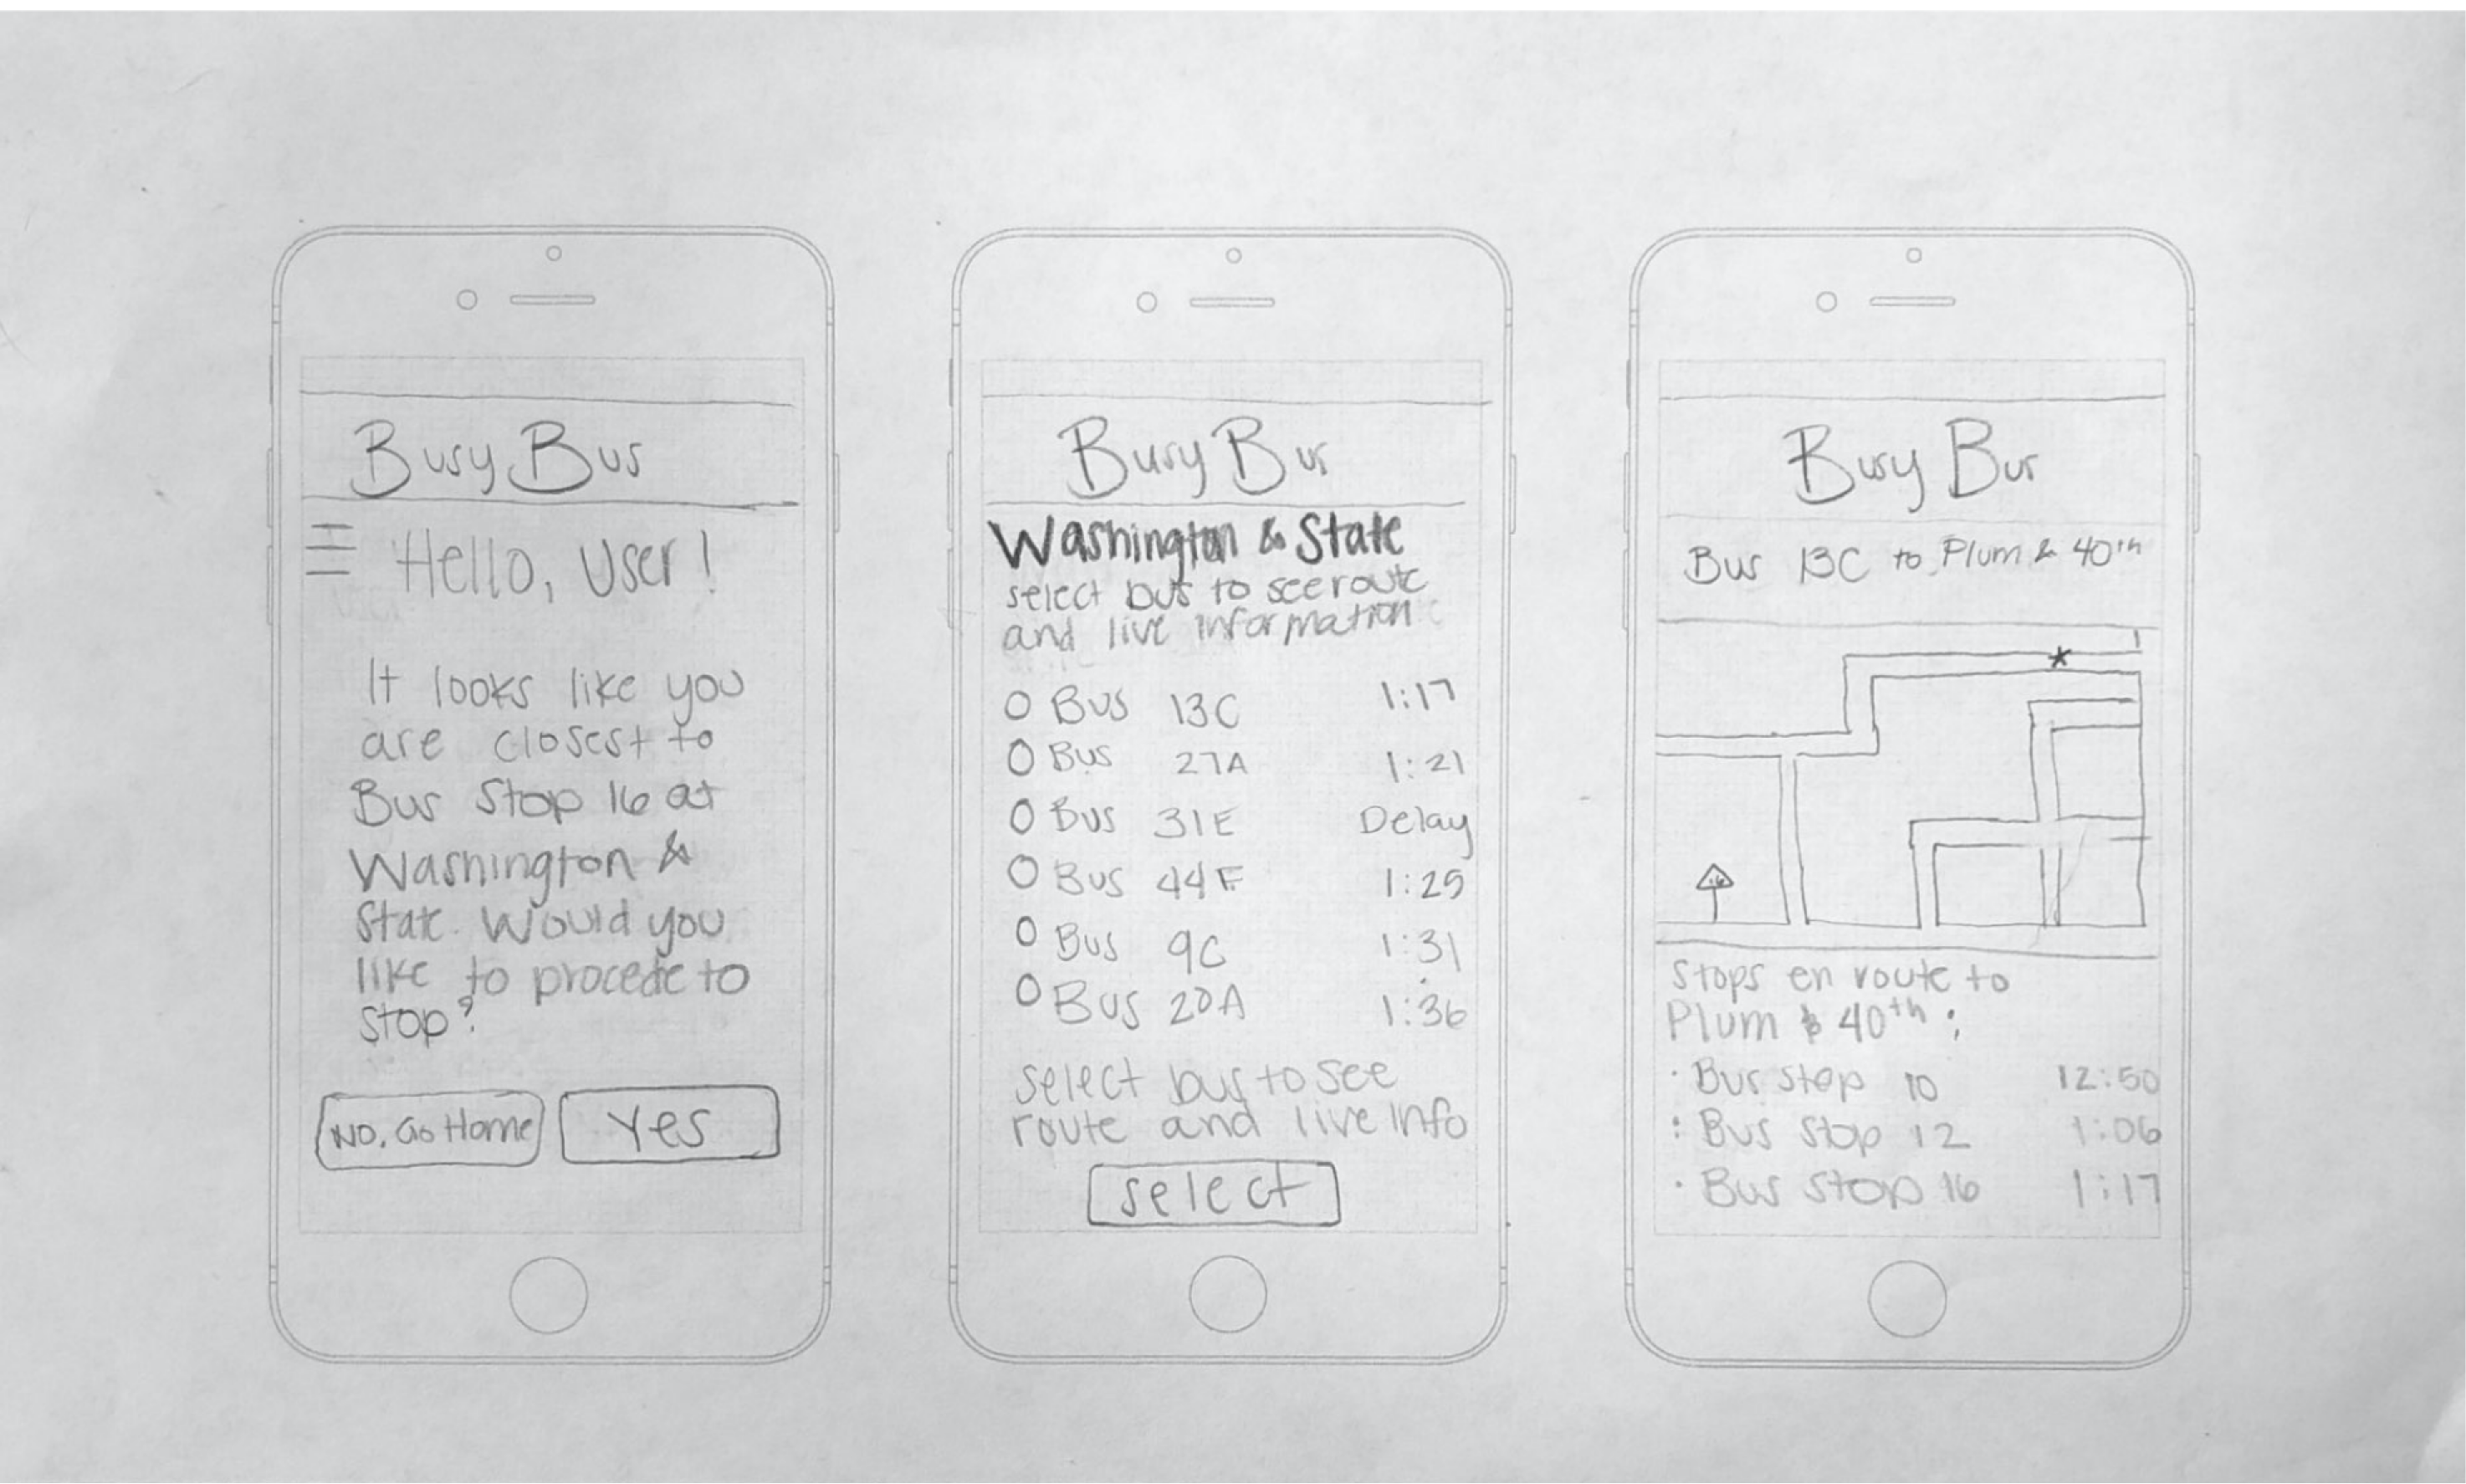 Busy Bus
Hello, User!
It looks like you
are closest to
Bus Stop 16 at
Washington &
State. Would you
like to procede to
stop?
No, Go Home
Yes
Busy Bus
Washington & State
select bus to see route
and live information
Bus 13C 1:17
Bus 27A 1:21
Bus 31E Delay
Bus 44F 1:25
Bus 9C 1:31
Bus 20A 1:36
select bus to see
route and live info
select
Busy Bus
Bus 13C to Plum & 40th
16
Stops en route to
Plum & 40th:
· Bus stop 10 12:50
· Bus stop 12 1:06
· Bus stop 16 1:17